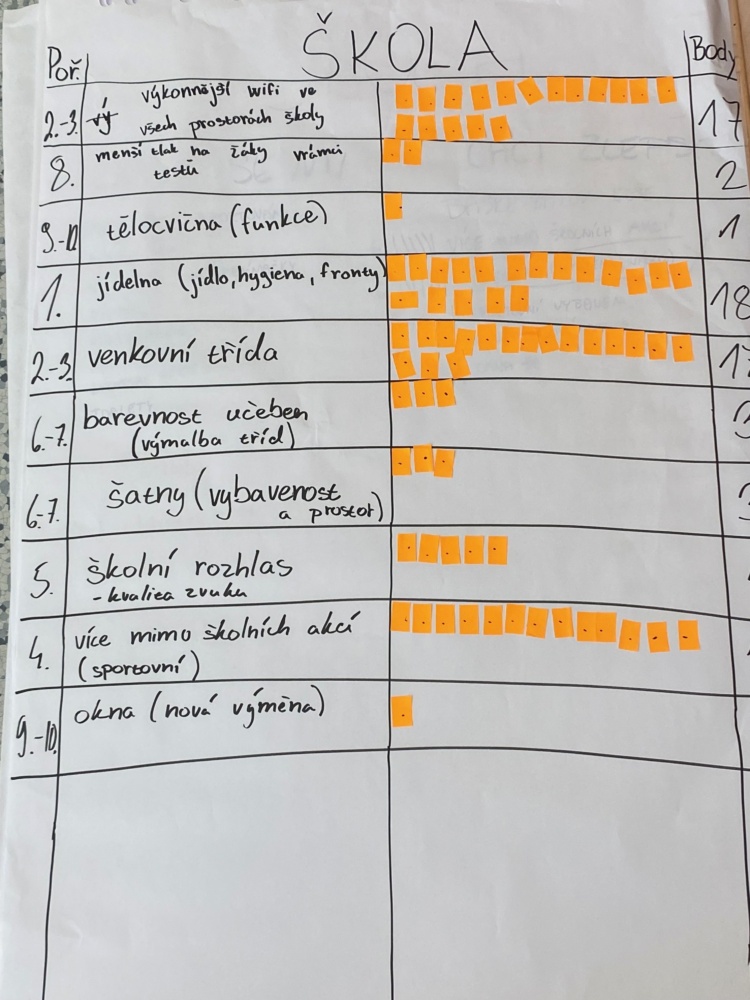 ŠKOLA
Poř. Body
2.-3. vý výkonnější wifi ve
všech prostorách školy 17
8. menší tlak na žáky vrámci
testů 2
9.-10 tělocvična (funkce) 1
1. jídelna (jídlo, hygiena, fronty) 18
2.-3. venkovní třída 17
6.-7. barevnost učeben
(výmalba tříd) 3
6.-7. šatny (vybavenost
a prostor) 3
5. školní rozhlas
- kvalita zvuku
4. více mimo školních akcí
(sportovní)
9.-10. okna (nová výměna)